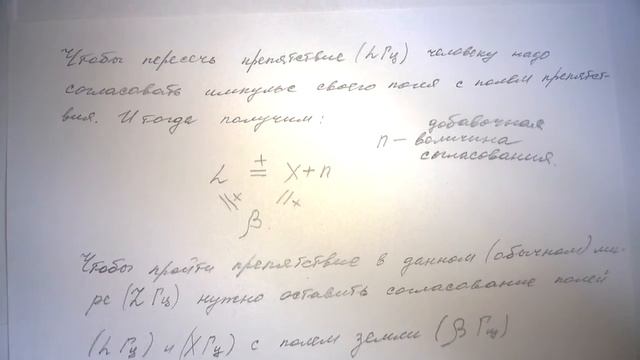 Чтобы пересечь препятствие (L Гц) человеку надо
согласовать импульс своего поля с полем препятст-
вия. И тогда получим:
n — добавочная
величина
согласования.
L ± X + n
β
Чтобы пройти препятствие в данном (обычном) ми-
ре (L Гц) нужно оставить согласование полей
(L Гц) и (X Гц) с полем земли (β Гц)